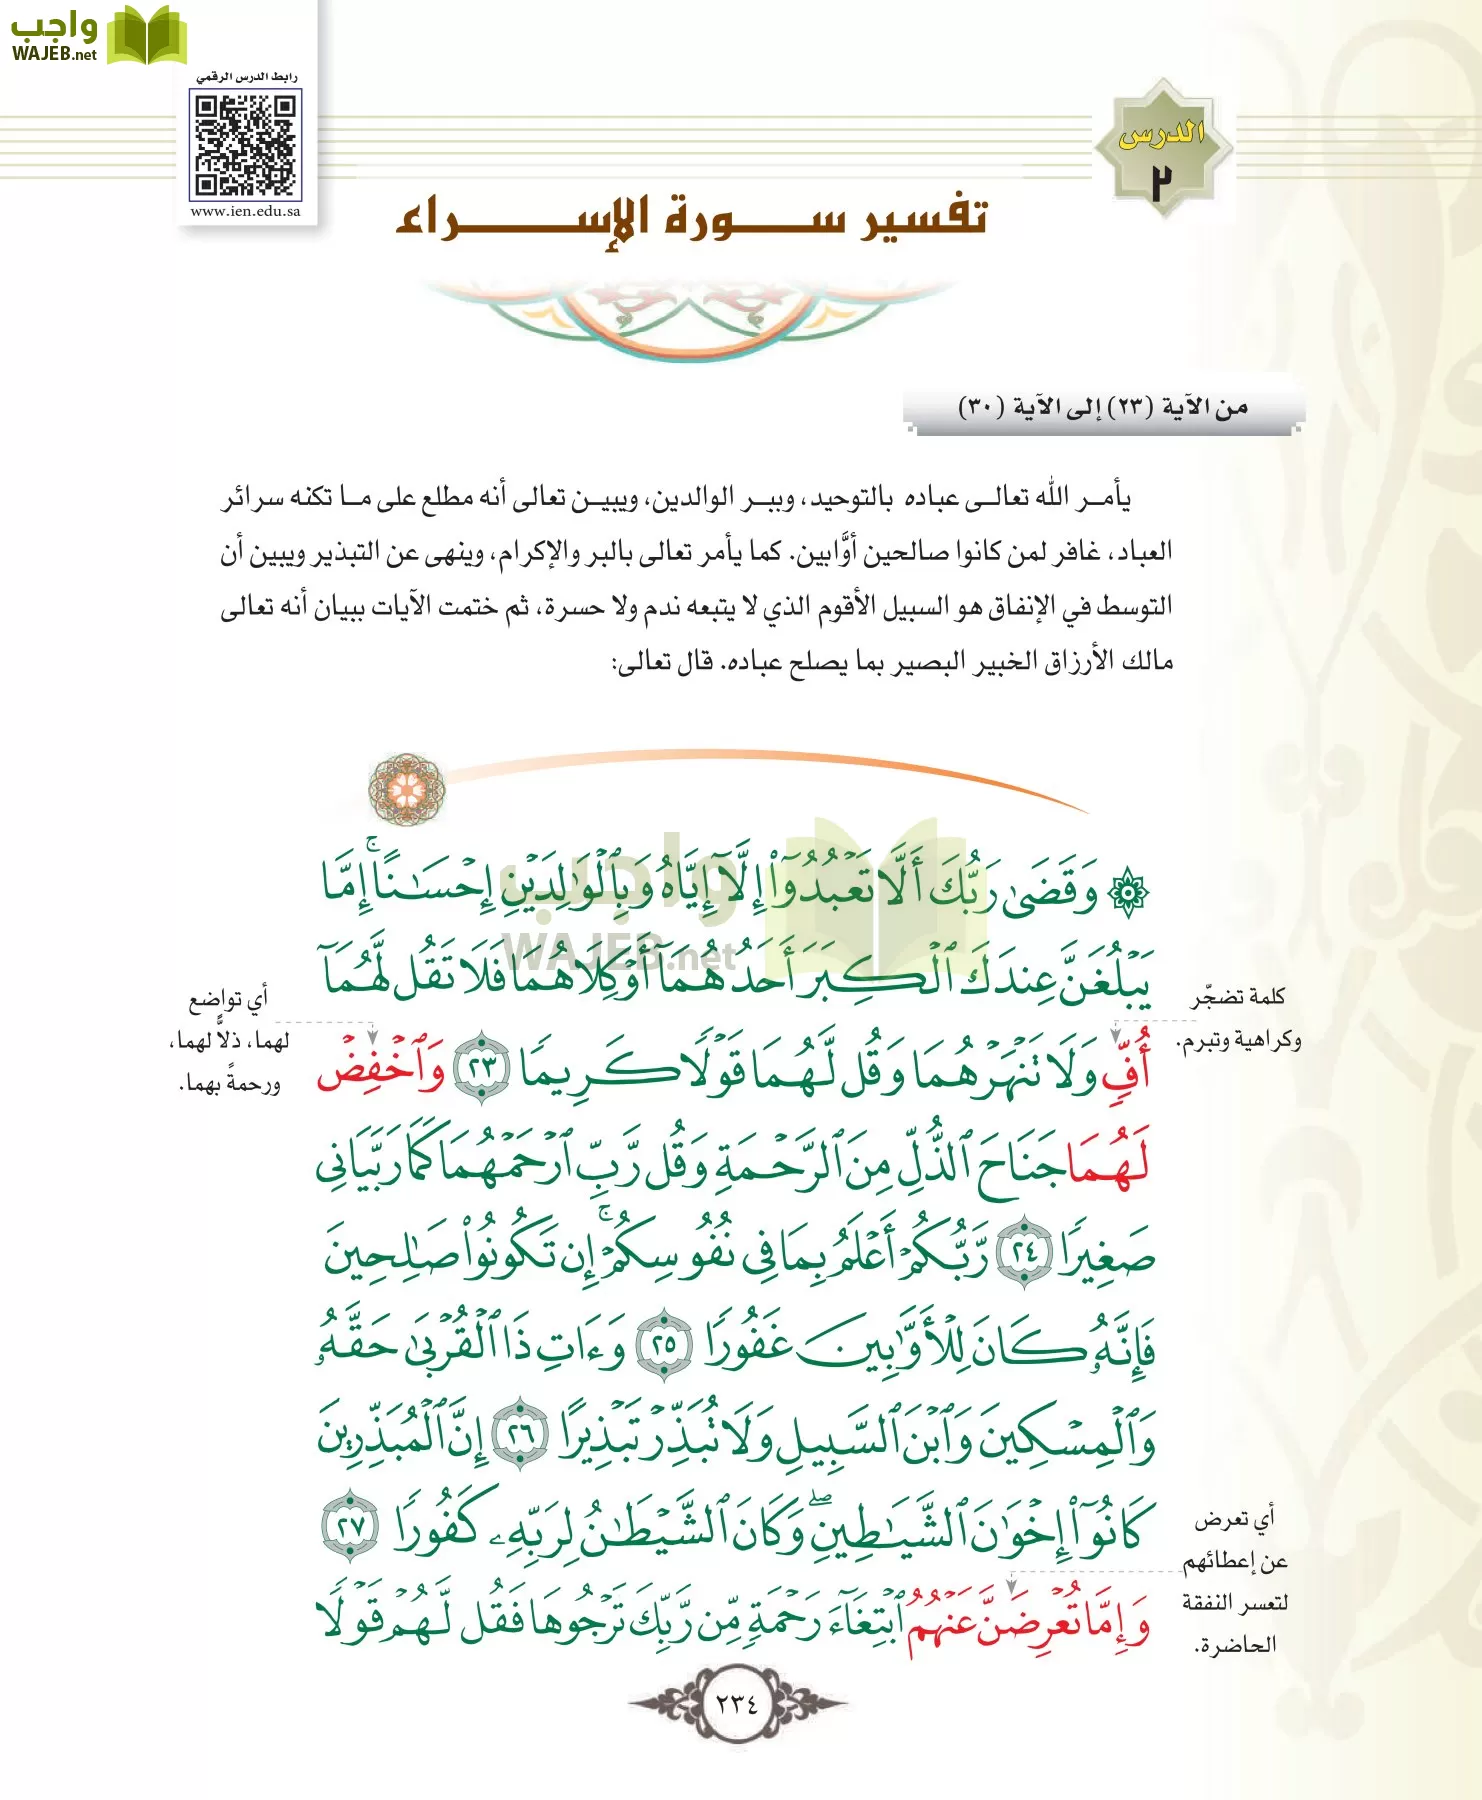 واجب
WAJEB.net
رابط الدرس الرقمي
www.ien.edu.sa
الدرس
٢
تفسير سورة الإسراء
من الآية (٢٣) إلى الآية (٣٠)
يأمر الله تعالى عباده بالتوحيد، وببر الوالدين، ويبين تعالى أنه مطلع على ما تكنه سرائر
العباد، غافر لمن كانوا صالحين أوَّابين. كما يأمر تعالى بالبر والإكرام، وينهى عن التبذير ويبين أن
التوسط في الإنفاق هو السبيل الأقوم الذي لا يتبعه ندم ولا حسرة، ثم ختمت الآيات ببيان أنه تعالى
مالك الأرزاق الخبير البصير بما يصلح عباده. قال تعالى:
واجب
WAJEB.net
۞ وَقَضَىٰ رَبُّكَ أَلَّا تَعۡبُدُوٓاْ إِلَّآ إِيَّاهُ وَبِٱلۡوَٰلِدَيۡنِ إِحۡسَٰنًاۚ إِمَّا
يَبۡلُغَنَّ عِندَكَ ٱلۡكِبَرَ أَحَدُهُمَآ أَوۡ كِلَاهُمَا فَلَا تَقُل لَّهُمَآ
أُفّٖ وَلَا تَنۡهَرۡهُمَا وَقُل لَّهُمَا قَوۡلٗا كَرِيمٗا ٢٣ وَٱخۡفِضۡ
لَهُمَا جَنَاحَ ٱلذُّلِّ مِنَ ٱلرَّحۡمَةِ وَقُل رَّبِّ ٱرۡحَمۡهُمَا كَمَا رَبَّيَانِي
صَغِيرٗا ٢٤ رَّبُّكُمۡ أَعۡلَمُ بِمَا فِي نُفُوسِكُمۡۚ إِن تَكُونُواْ صَٰلِحِينَ
فَإِنَّهُۥ كَانَ لِلۡأَوَّٰبِينَ غَفُورٗا ٢٥ وَءَاتِ ذَا ٱلۡقُرۡبَىٰ حَقَّهُۥ
وَٱلۡمِسۡكِينَ وَٱبۡنَ ٱلسَّبِيلِ وَلَا تُبَذِّرۡ تَبۡذِيرًا ٢٦ إِنَّ ٱلۡمُبَذِّرِينَ
كَانُوٓاْ إِخۡوَٰنَ ٱلشَّيَٰطِينِۖ وَكَانَ ٱلشَّيۡطَٰنُ لِرَبِّهِۦ كَفُورٗا ٢٧
وَإِمَّا تُعۡرِضَنَّ عَنۡهُمُ ٱبۡتِغَآءَ رَحۡمَةٖ مِّن رَّبِّكَ تَرۡجُوهَا فَقُل لَّهُمۡ قَوۡلٗا
كلمة تضجّر
وكراهية وتبرم.
أي تواضع
لهما، ذلاًّ لهما،
ورحمةً بهما.
أي تعرض
عن إعطائهم
لتعسر النفقة
الحاضرة.
٢٣٤